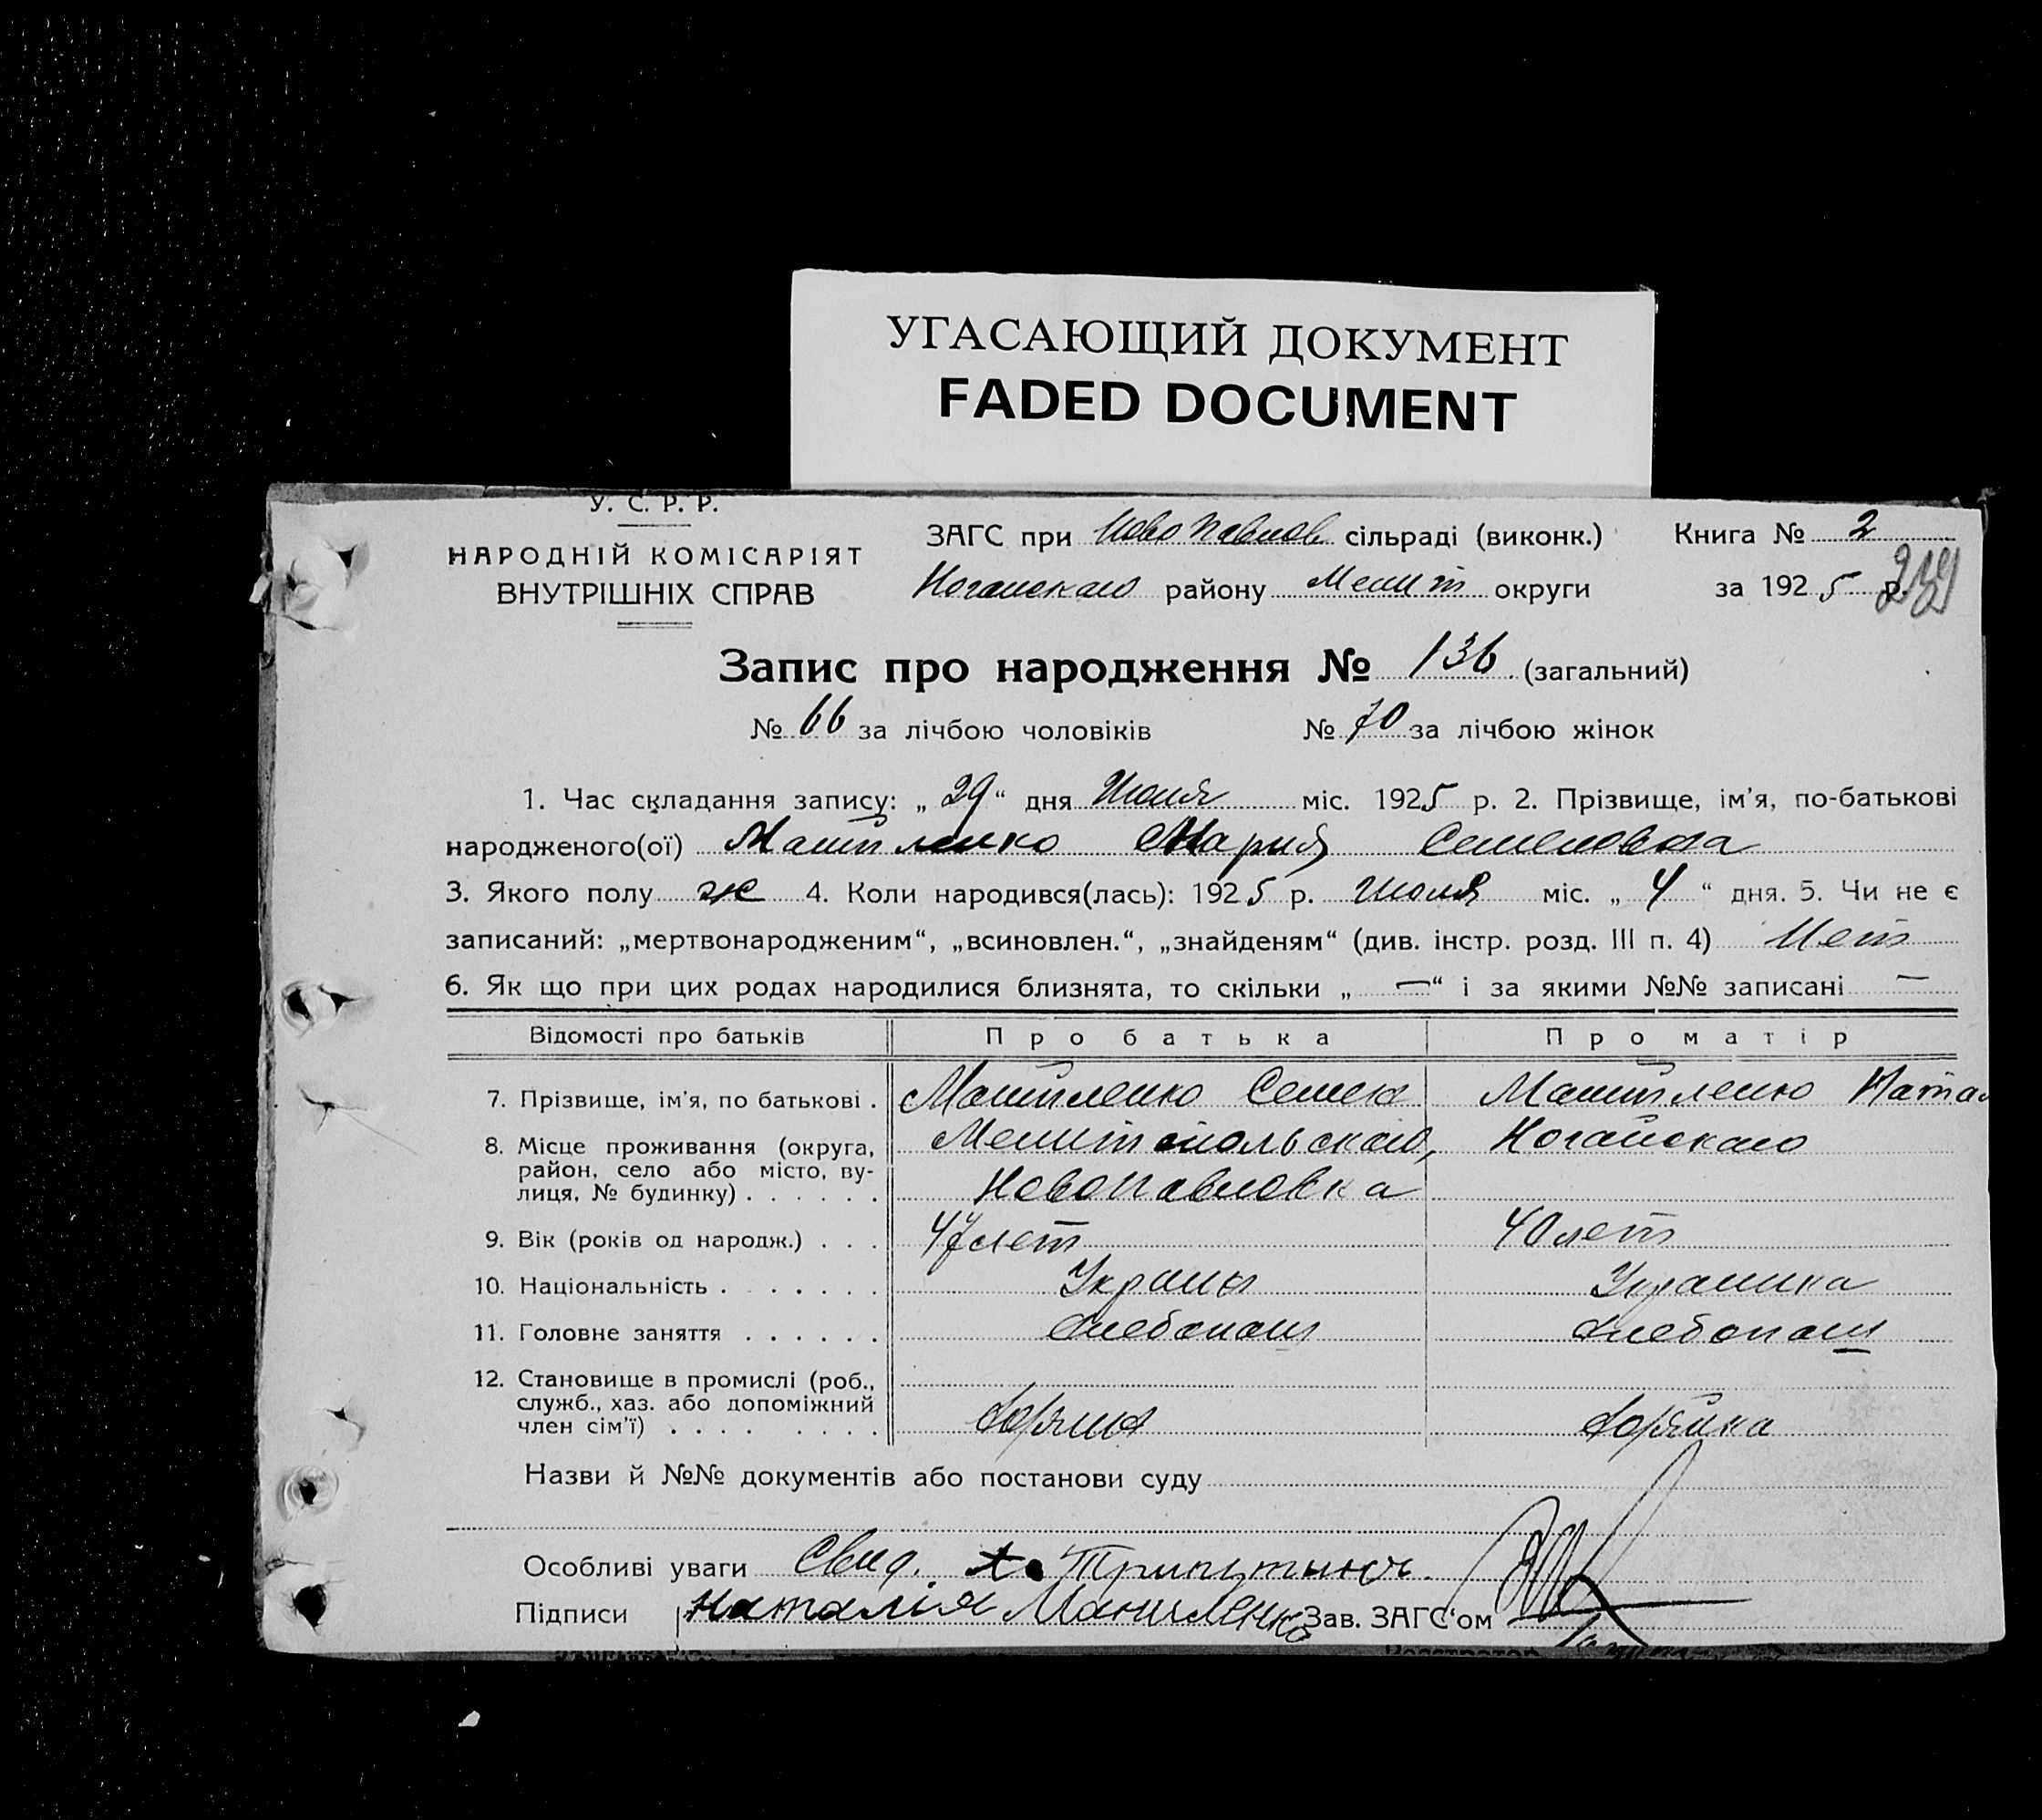 УГАСАЮЩИЙ ДОКУМЕНТ
FADED DOCUMENT
У. С. Р. Р.
НАРОДНІЙ КОМІСАРІЯТ
ВНУТРІШНІХ СПРАВ
ЗАГС при Ново Павлов сільраді (виконк.) Книга № 2
Ногайскаго району Мелит округи за 1925 р.
Запис про народження № 136 (загальний)
№ 66 за лічбою чоловіків № 70 за лічбою жінок
1. Час складання запису: „29“ дня Июля міс. 1925 р. 2. Прізвище, ім’я, по-батькові
народженого(ої) Мария Семеновна
3. Якого полу ж 4. Коли народився(лась): 1925 р. Июля міс. „4“ дня. 5. Чи не є
записаний: „мертвонародженим“, „всиновлен.“, „знайденям“ (див. інстр. розд. III п. 4) Нет
6. Як що при цих родах народилися близнята, то скільки „—“ і за якими №№ записані —
Відомості про батьків Про батька Про матір
7. Прізвище, ім’я, по батькові . Семен Натал
8. Місце проживання (округа, Мелитопольскаго, Ногайскаго
район, село або місто, ву-
лиця, № будинку) . . . . . . Новопавловка
9. Вік (років од народж.) . . . 47 лет 40 лет
10. Національність . . . . . . Украин Украинка
11. Головне заняття . . . . . . Хлебопаш Хлебопаш
12. Становище в промислі (роб.,
служб., хаз. або допоміжний
член сім’ї) . . . . . . . . Хозяин Хозяйка
Назви й №№ документів або постанови суду
Особливі уваги Свид.
Підписи Наталія Зав. ЗАГС‘ом